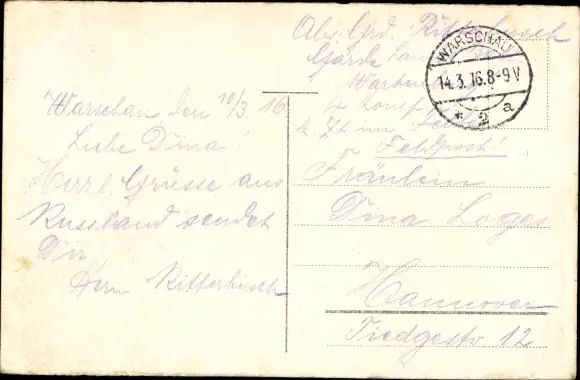 Warschau den 10/3. 16
Liebe Dina!
Herzl. Grüsse aus
Russland sendet
Dir
Herm Ritterbusch
Abs. Grd. Ritterbusch
Garde
4 Komp.
z. Zt im
Feldpost!
WARSCHAU
14.3.16.8-9V
* 2 a
Fräulein
Dina Loges
Hannover
Tiedgestr. 12